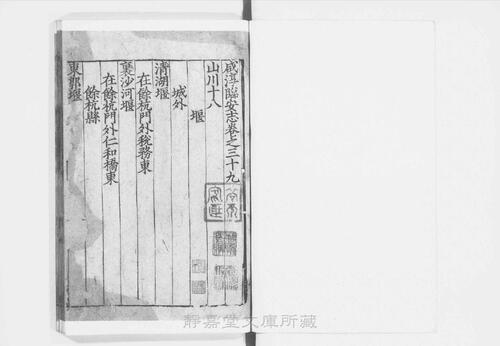 咸淳臨安志卷之三十九
山川十八
堰
城外
清湖堰
在餘杭門外稅務東
裏沙河堰
在餘杭門外仁和橋東
餘杭縣
東郭堰
靜嘉堂文庫所藏